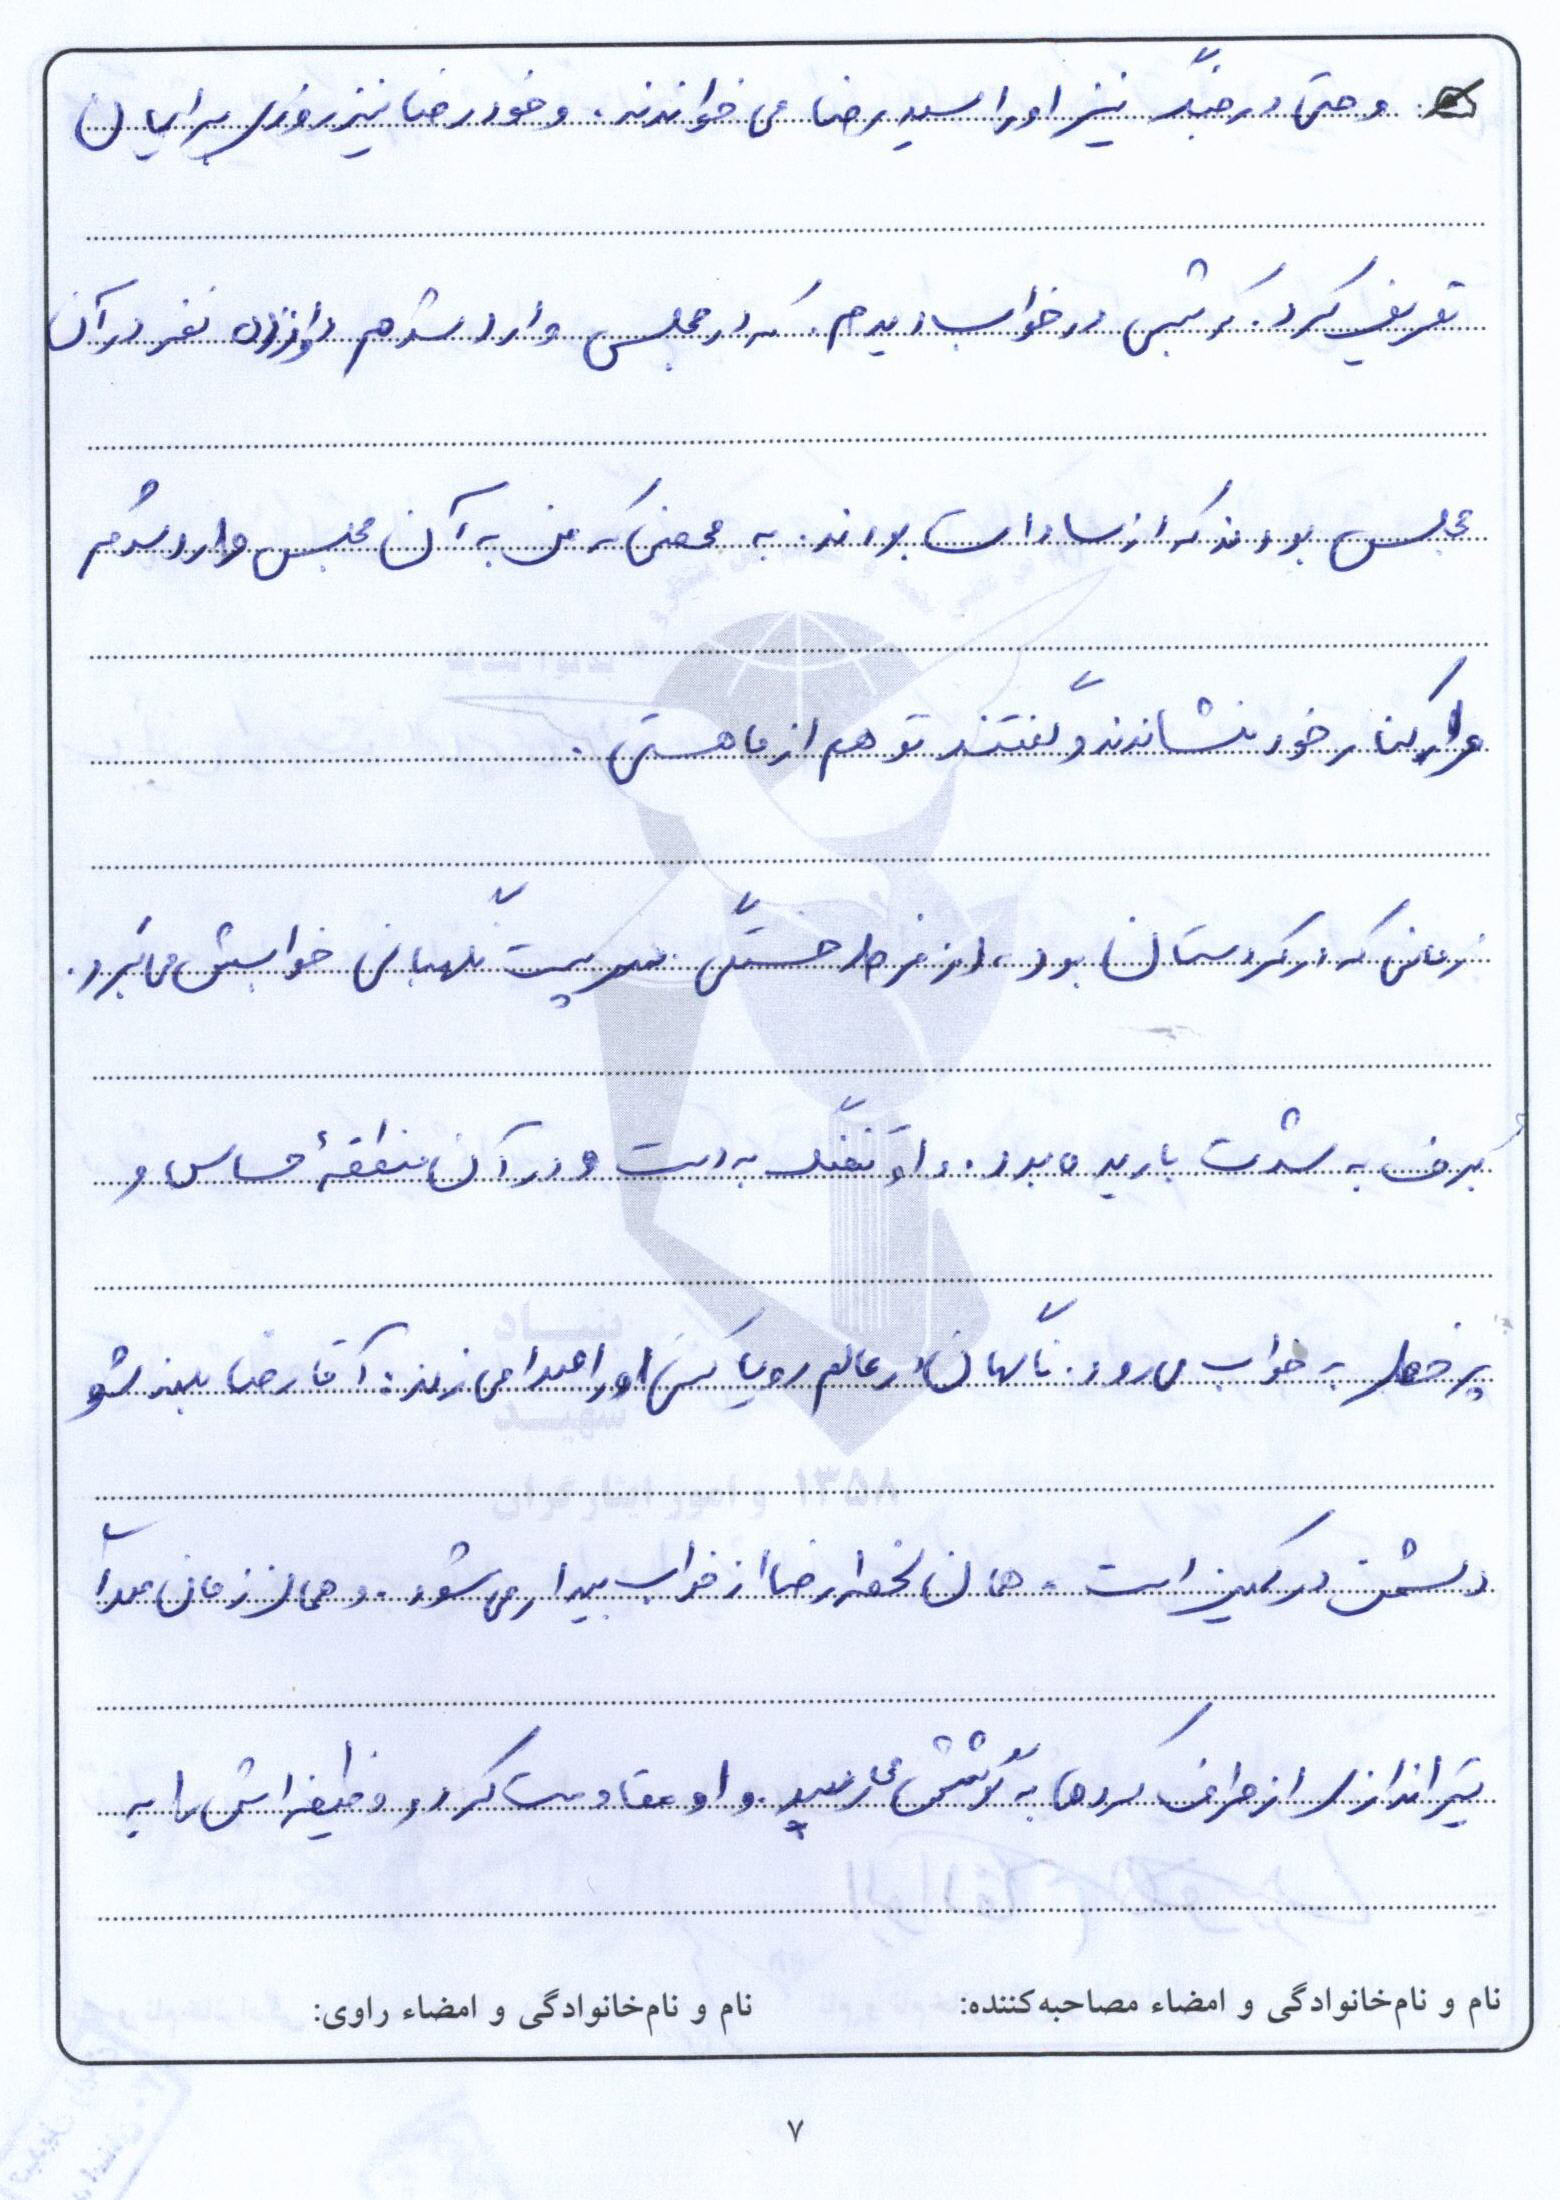 و حتی در جنگ نیز او را سید رضا می خواندند. و خود رضا نیز روزی برایمان
تعریف کرد. که شبی در خواب دیدم. که در مجلسی وارد شدم دوازده نفر در آن
مجلس بودند که از سادات بودند. به محضی که من به آن مجلس وارد شدم
مرا در کنار خود نشاندند و گفتند تو هم از ما هستی.
زمانی که در کردستان بود، از فرط خستگی سر پست نگهبانی خوابش می برد.
برف به شدت باریده بود. و او تفنگ به دست و در آن منطقهٔ حساس و
پر خطر به خواب می رود. ناگهان در عالم رویا کسی او را صدا می زند: آقا رضا بلند شو
دشمن در کمین است. همان لحظه رضا از خواب بیدار می شود. و همان زمان صدای
تیراندازی از طرف کردها به گوشش می رسید. و او مقاومت کرد و وظیفه اش را به
نام و نام‌خانوادگی و امضاء مصاحبه‌کننده:
نام و نام‌خانوادگی و امضاء راوی:
۷
بنیاد
شهید
و امور ایثارگران
۱۳۵۸